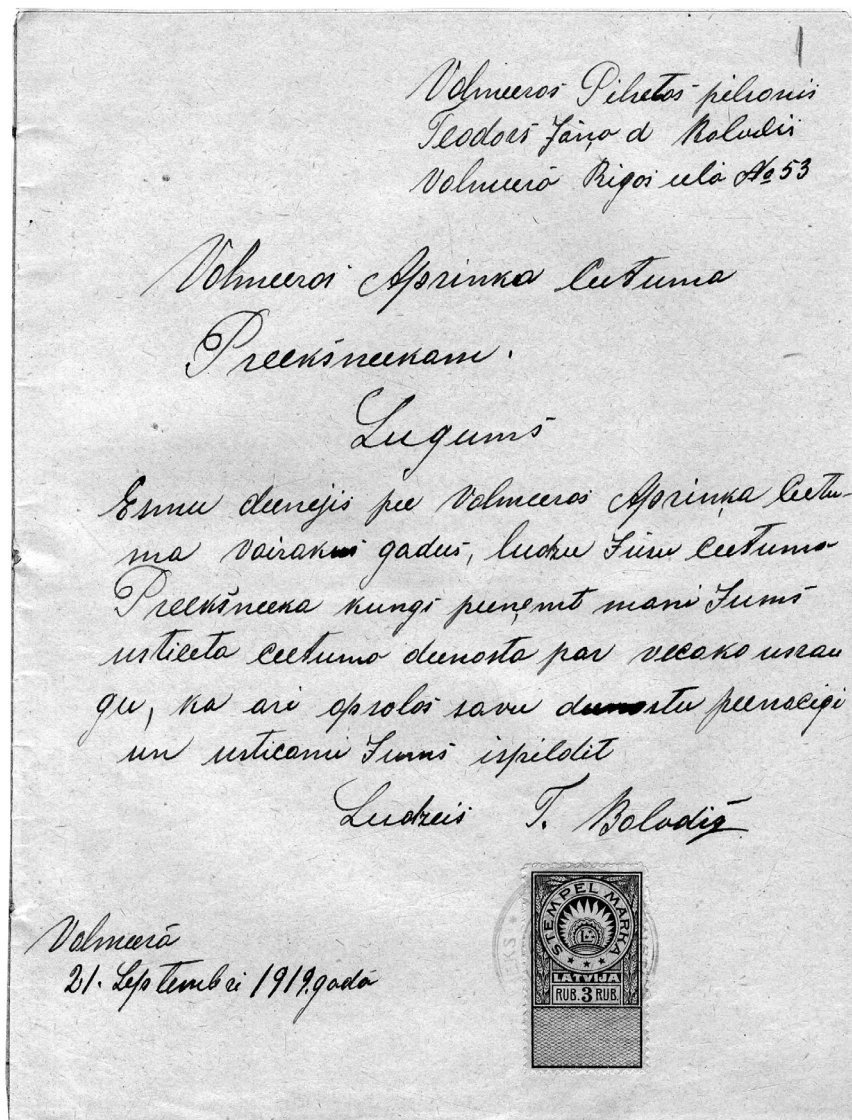 Volmeeras Pilsetas pilsonis
Teodors Jāņa d Balodis
Volmeerā Rigas eelā № 53
Volmeeras Aprinka Ceetuma
Preekšneekam.
Lugums
Esmu deenejis pee Volmeeras Aprinķa Ceetu-
ma vairakus gadus, ludzu Jūsu Ceetuma
Preekšneeka kungs peeņemt mani Jums
usticeta ceetuma deenasta par vecako usrau
gu, ka ari apsolos savu deenastu peenacigi
un usticami Jums ispildit
Ludzeis T. Balodis
Volmeerā
21. Septembri 1919. gadā
STEMPEL MARKA
LATVIJA
RUB. 3 RUB.